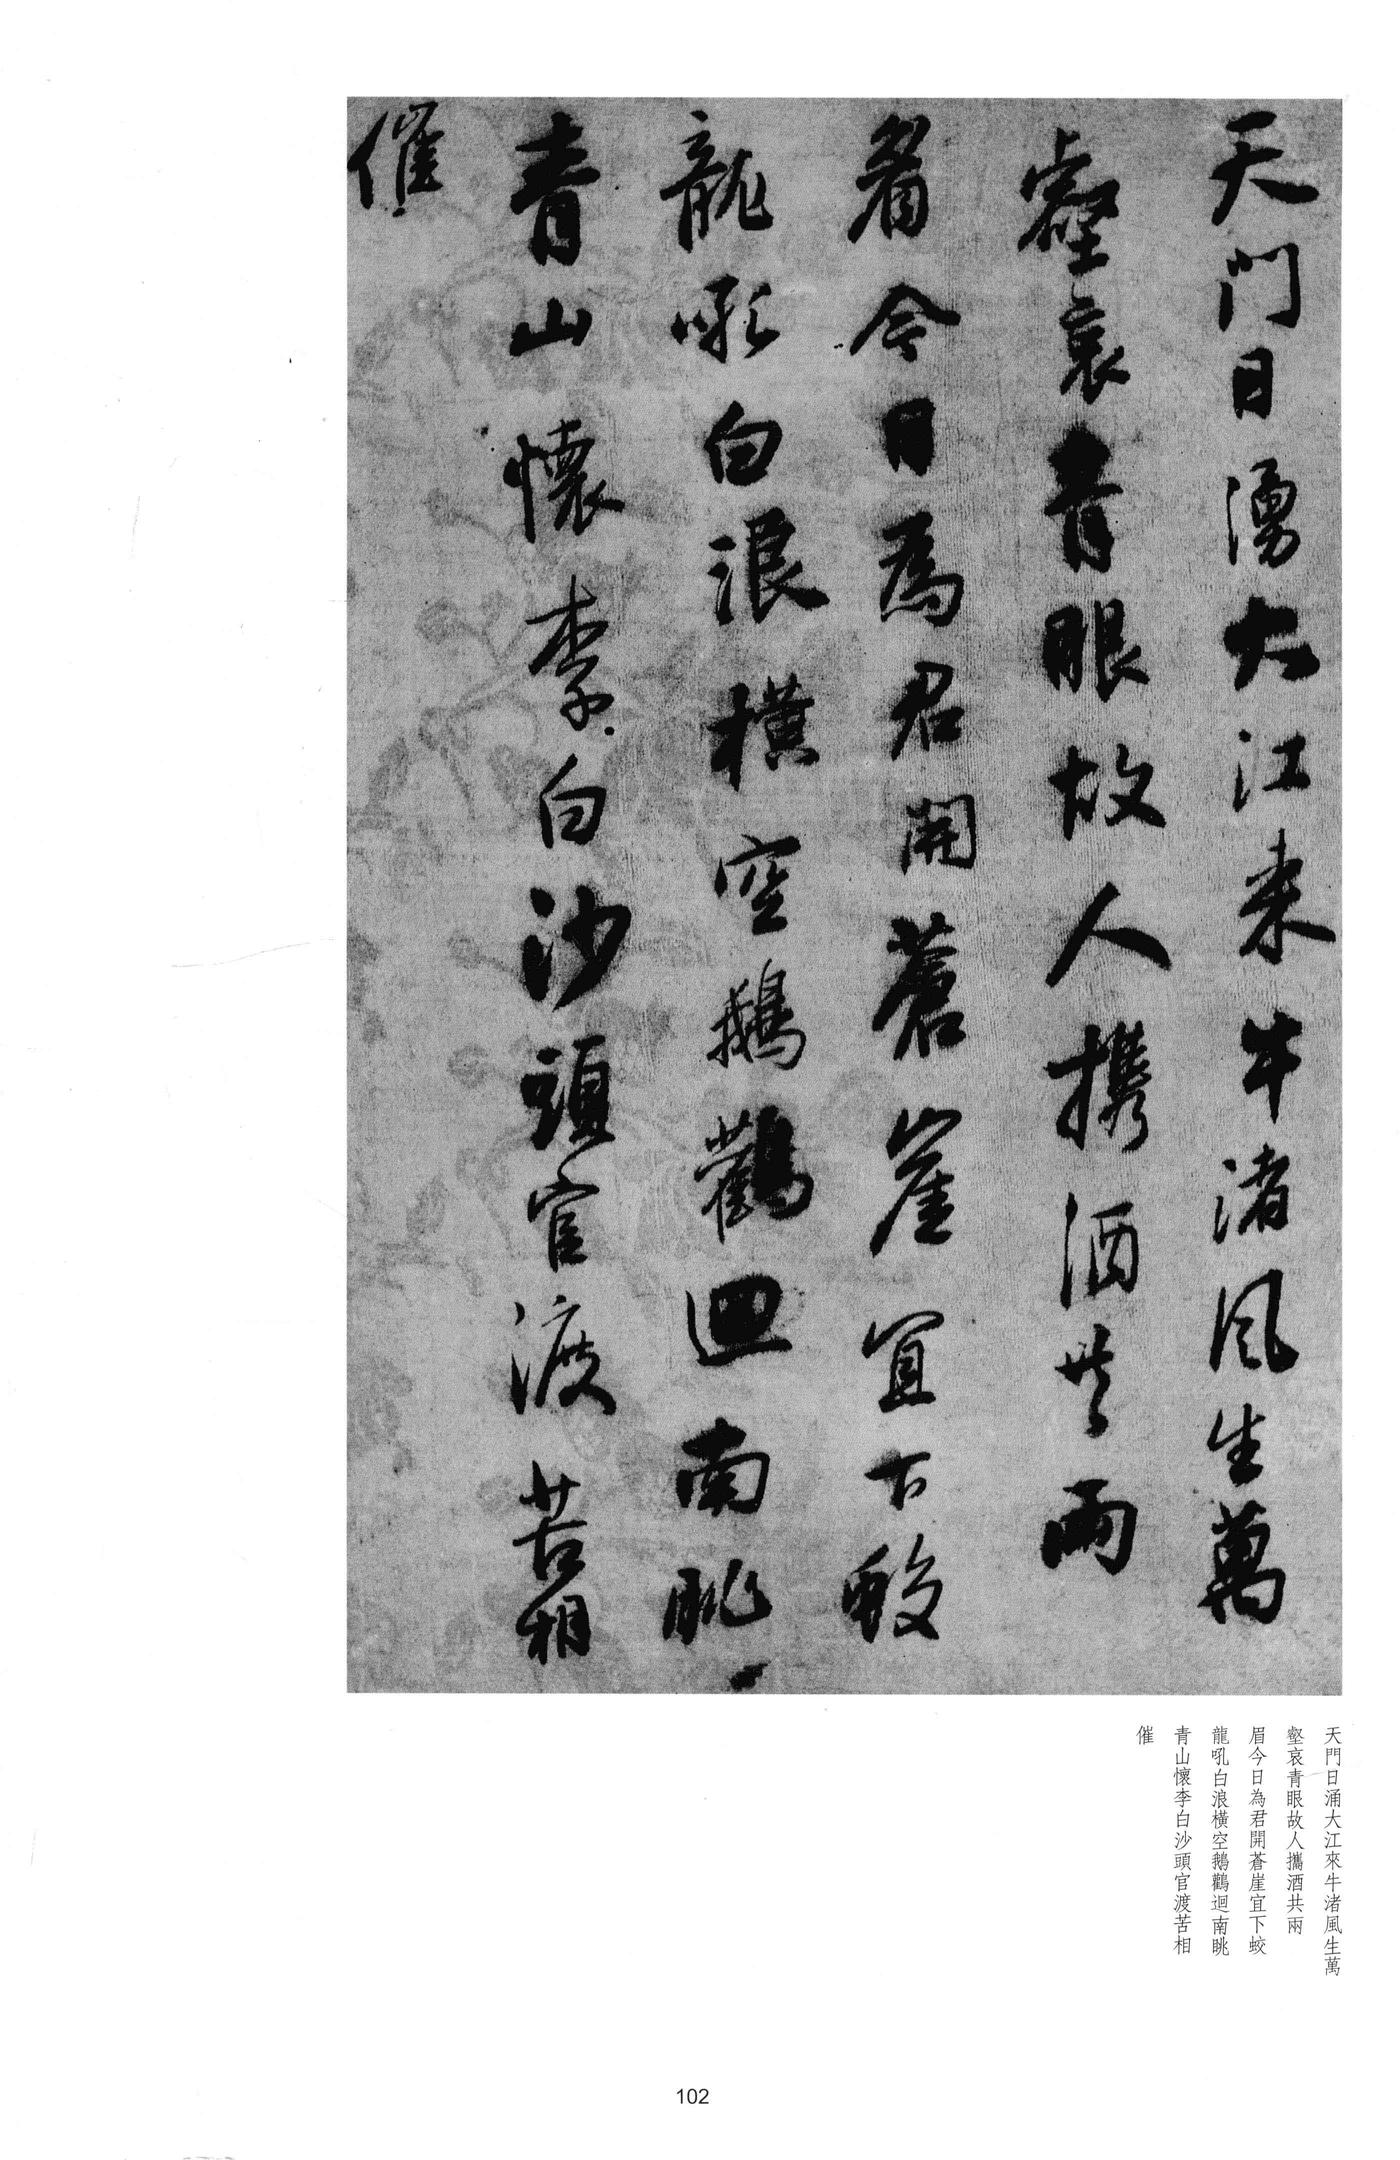 天門日湧大江来牛渚風生萬
壑哀青眼故人携酒共兩
眉今日為君開蒼崖宜下蛟
龍吼白浪橫空鵝鸛迴南眺
青山懷李白沙頭官渡苦相
催
天門日涌大江來牛渚風生萬
壑哀青眼故人攜酒共兩
眉今日為君開蒼崖宜下蛟
龍吼白浪橫空鵝鸛迴南眺
青山懷李白沙頭官渡苦相
催
102